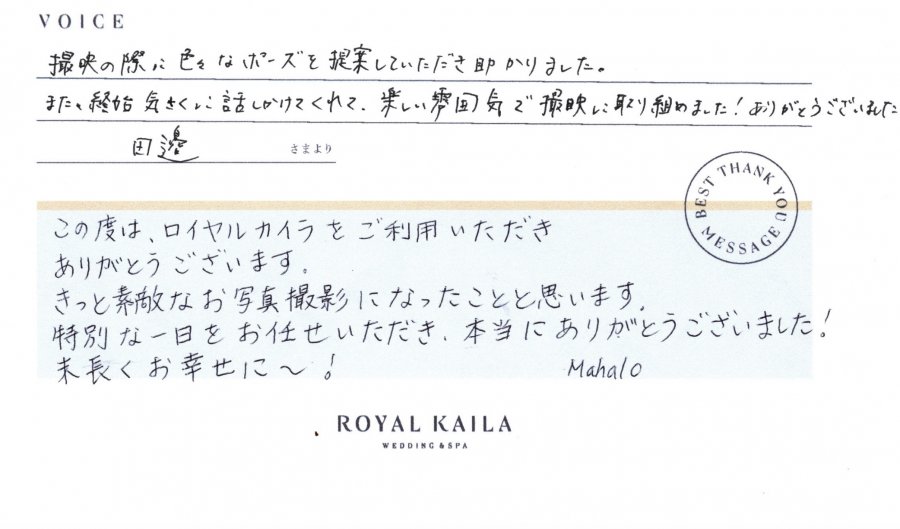 VOICE
撮映の際に色々なポーズを提案していただき助かりました。
また、終始気さくに話しかけてくれて、楽しい雰囲気で撮映に取り組めました!ありがとうございました
田邊 さまより
BEST THANK YOU MESSAGE
この度は、ロイヤルカイラをご利用いただき
ありがとうございます。
きっと素敵なお写真撮影になったことと思います。
特別な一日をお任せいただき、本当にありがとうございました!
末長くお幸せに〜!
Mahalo
ROYAL KAILA
WEDDING & SPA